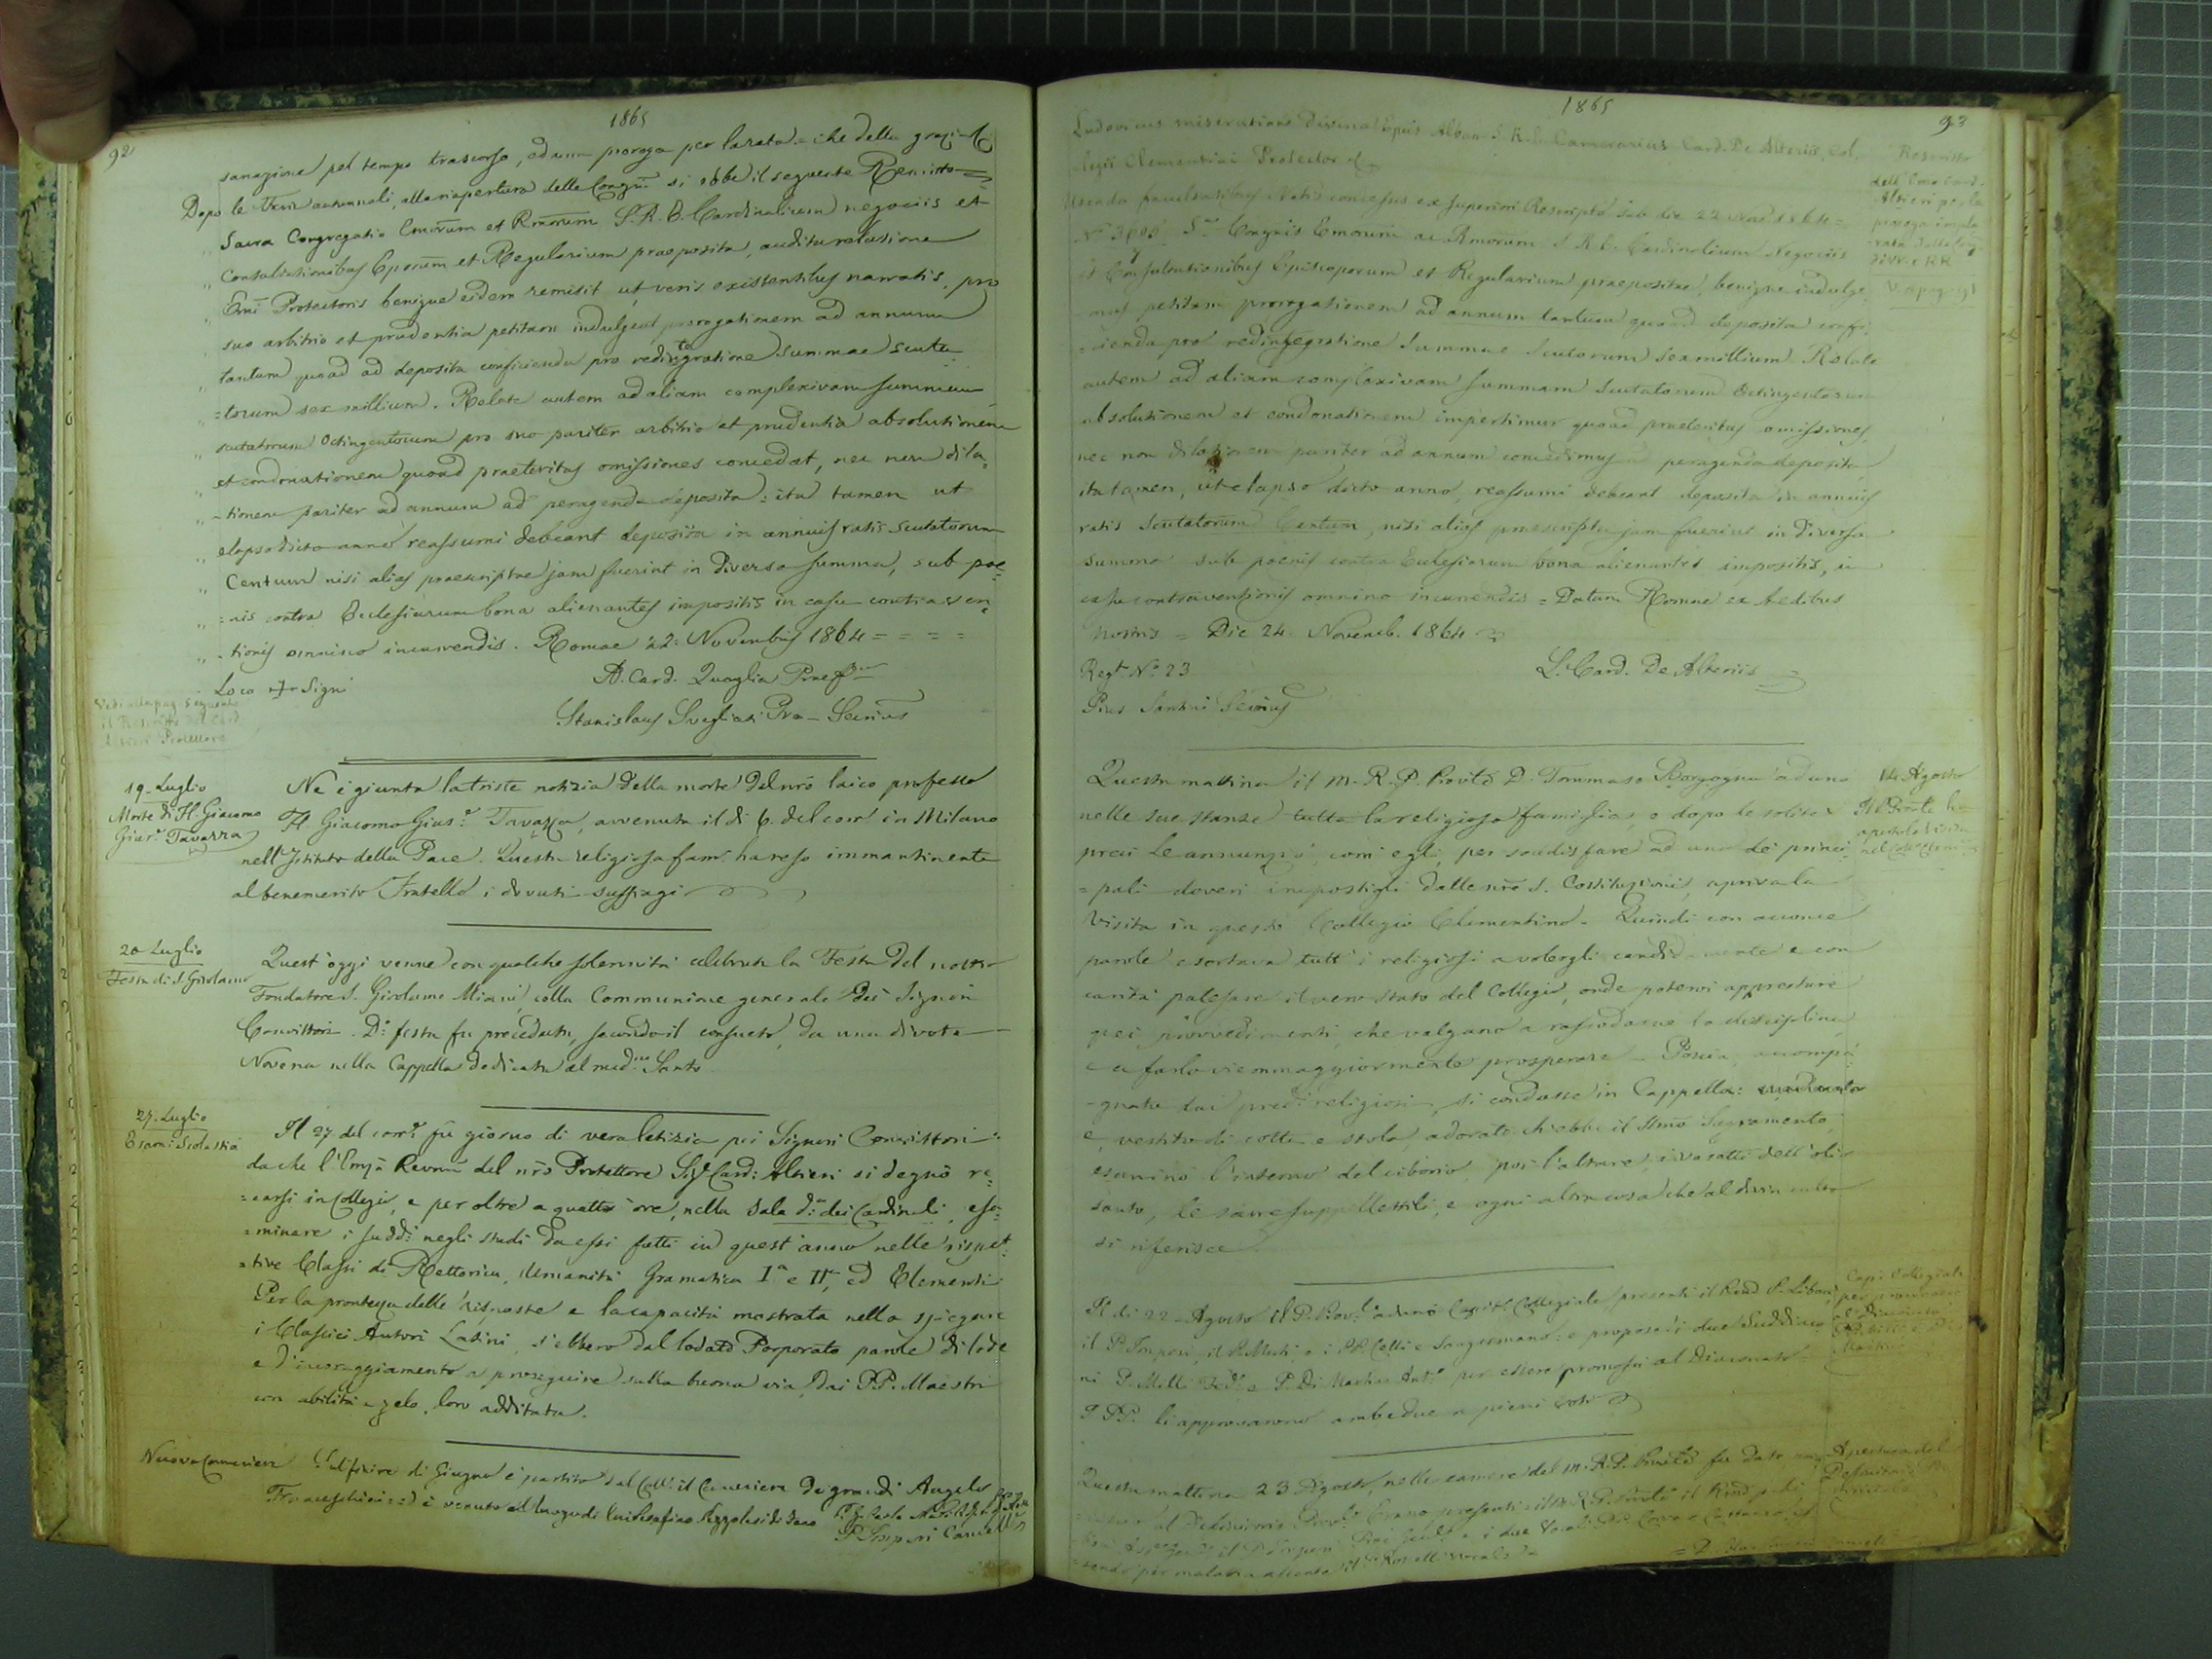 1865
92
sanazione pel tempo trascorso, ed una proroga per la rata = che della grazia
Dopo le Ferie autunnali, alla riapertura delle Congni si ebbe il seguente Rescritto =
„ Sacra Congregatio Emorum et Rmorum S. R. E. Cardinalium negociis et
„ Consultationibus Eporum et Regularium praeposita, audita relatione
„ Emi Protectoris benigne eidem remisit ut, veris existentibus narratis, pro
„ suo arbitrio et prudentia petitam indulgeat prorogationem ad annum
„ tantum quoad ad deposita conficienda pro redintegratione summae scuta-
„ =torum sex millium. Relate autem ad aliam complexivam summam
„ scutatorum Octingentorum pro suo pariter arbitrio et prudentia absolutionem
„ et condonationem quoad praeteritas omissiones concedat, nec non dila=
„ -tionem pariter ad annum ad peragenda deposita: ita tamen ut
„ elapso dicto anno reassumi debeant deposita in annuis ratis scutatorum
„ Centum nisi alias praescriptae jam fuerint in diversa summa, sub poe=
„ =nis contra Ecclesiarum bona alienantes impositis in casu contraven=
„ -tionis omnino incurrendis. Romae 22. Novembris 1864 = = = =
A. Card. Quaglia Praef.
Loco + Signi
Stanislaus Svegliati Pro-Secrius
Vedi alla pag. seguente
il Rescritto del Card.
Altieri Protettore
19. Luglio
Morte di Fl. Giacomo
Gius.e Tavazza
Ne è giunta la triste notizia della morte del nro laico professo
Fl. Giacomo Gius.e Tavazza, avvenuta il dì 6. del corr. in Milano
nell'Istituto della Pace. Questa religiosa fam. ha reso immantinente
al benemerito Fratello i dovuti suffragi
20 Luglio
Festa di S. Girolamo
Quest'oggi venne con qualche solennità celebrata la Festa del nostro
Fondatore S. Girolamo Miani, colla Communione generale dei Signori
Convittori. D.a festa fu preceduta, secondo il consueto, da una divota
Novena nella Cappella dedicata al med.mo Santo
27. Luglio
Esami Scolastici
Il 27 del corr.e fu giorno di vera letizia pei Signori Convittori:
da che l'Emza Revma del nro Protettore Sig. Card: Altieri si degnò re=
=carsi in Collegio, e per oltre a quattr'ore, nella Sala d.a dei Cardinali, esa=
=minare i sudd.i negli studi da essi fatti in quest'anno nelle rispet=
=tive Classi di Rettorica, Umanità Gramatica Ia e IIa, ed Elementi
Per la prontezza delle risposte e la capacità mostrata nello spiegare
i Classici Autori Latini, s'ebbero dal lodato Porporato parole di lode
e d'incoraggiamento a proseguire sulla buona via, dai PP. Maestri
con abilità e zelo, loro additata.
Nuovo Cameriere
Sul finire di Giugno è partito dal Coll.o il Cameriere Degrandi Angelo
Franceschini: ed è venuto al luogo di lui Serafino
1865
93
Ludovicus miseratione divina Epus Alban. S. R. E. Camerarius Card. De Alteriis, Col=
legii Clementini Protector
Utendo facultatibus Nobis concessis ex superiori Rescripto sub die 22 Nov. 1864 =
S. Congnis Emorum ac Rmorum S. R. E. Cardinalium Negociis
et Consultationibus Episcoporum et Regularium praepositae, benigne indulge
mus petitam prorogationem ad annum tantum quoad deposita confi=
=cienda pro redintegratione Summae Scutorum Sexmillium. Relate
autem ad aliam complexivam summam Scutatorum Octingentorum
absolutionem et condonationem impertimur quoad praeteritas omissiones,
nec non dilationem pariter ad annum concedimus ad peragenda deposita,
ita tamen, ut elapso dicto anno, reassumi debeant deposita in annuis
ratis Scutatorum Centum, nisi alias praescripta jam fuerint in diversa
summa sub poenis contra Ecclesiarum bona alienantes impositis, in
casu contraventionis omnino incurrendis = Datum Romae ex Aedibus
Nostris = Die 24. Novemb. 1864
Reg. No 23
L. Card. De Alteriis
Pius Santini Secrius
Rescritto
dell'Emo Card.
Altieri per la
proroga impe
-rata dalla Cong.
di VV. e RR
14 Agosto
Il P. Provle ha
aperto la visita
nel Coll. Clemen
Questa mattina il M. R. P. Provle D. Tommaso Borgogna adunò
nelle sue stanze tutta la religiosa famiglia, e dopo le solite
preci le annunziò, com'egli, per soddisfare ad uno dei princi=
=pali doveri impostigli dalle nre S. Costituzioni, apriva la
Visita in questo Collegio Clementino. Quindi con acconce
parole esortava tutt'i religiosi a volergli candidamente e con
carità palesare il vero stato del Collegio, onde potervi apprestare
quei provvedimenti, che valgano a rassodarne la disciplina
e a farlo viemmaggiormente prosperare. Poscia, accompa=
-gnato dai predi religiosi, si condusse in Cappella:
e, vestito di cotta e stola, adorato ch'ebbe il Ssmo Sacramento,
esaminò l'interno del ciborio, poi l'altare, i vasetti dell'olio
santo, le sacre suppellettili, e ogni altra cosa che al divin culto
si riferisce.
Capi. Collegiale
per promuovere
al Diaconato
Il dì 22 Agosto il P. Provle adunò Capit.o Collegiale, presenti il Rmo P. Libois
il P. Imperi, il P. Merti, e i PP. Cetti e Sangermano: e propose i due Suddiaco
ni P. Milli e P. Di Martino Ant.o per essere promossi al Diaconato =
I PP. li approvarono ambedue a pieni voti
Apertura del
Definitorio
Provinciale
Questa mattina 23 Agosto, nelle camere del M. R. P. Provle fu dato
al Definitorio Provle. Erano presenti